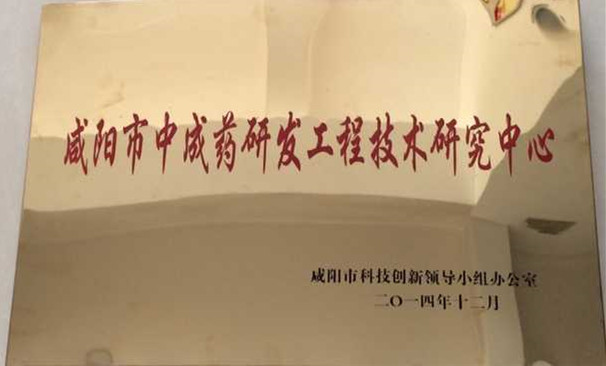 咸阳市中成药研发工程技术研究中心
咸阳市科技创新领导小组办公室
二〇一四年十二月